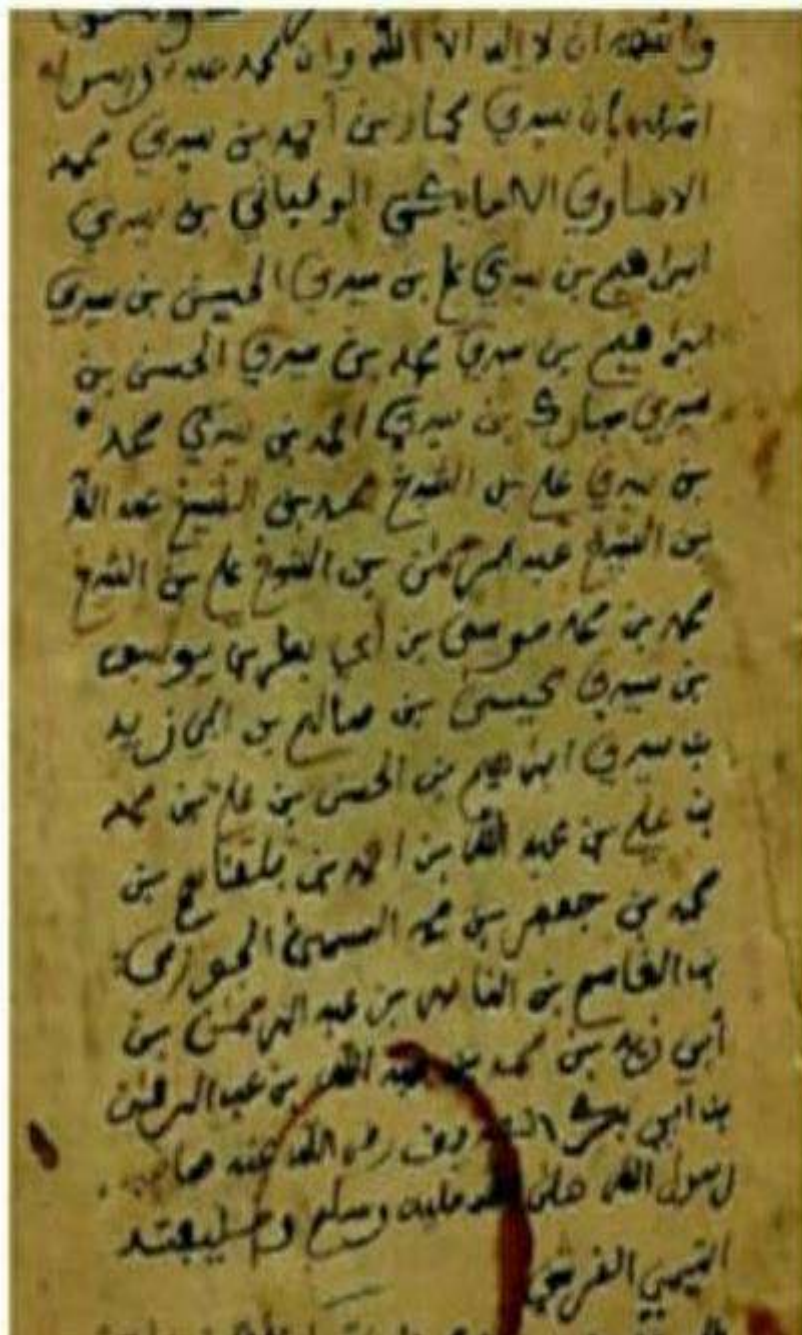 وأشهد ان لا اله الا الله وان محمد عبده ورسوله
سيدي مختار بن أحمد بن سيدي محمد
الوغياني بن سيدي
ابراهيم بن سيدي علي بن سيدي الحسين بن سيدي
ابراهيم بن سيدي محمد بن سيدي الحسن بن
سيدي مبارك بن سيدي احمد بن سيدي محمد
بن سيدي علي بن الشيخ محمد بن الشيخ عبد الله
بن الشيخ عبد الرحمن بن الشيخ علي بن الشيخ
محمد بن محمد موسى بن أبي بكر بن يوسف
بن سيدي عيسى بن صالح بن ابي زيد
بن سيدي ابراهيم بن الحسن بن علي بن محمد
بن علي بن عبد الله بن احمد بن بن
محمد بن جعفر بن محمد الجوزي
بن القاسم بن القاسم بن عبد الرحمن بن
أبي زيد بن محمد بن عبد الله بن عبد الرحمن
بن أبي بكر رضي الله عنه
رسول الله صلى الله عليه وسلم وخليفته
التيمي القرشي